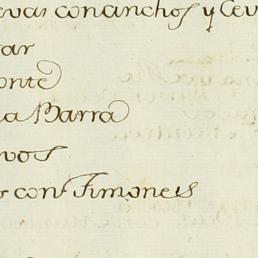 evas conanchos y Cev
ar
onte
la Barra
vos
con Timones